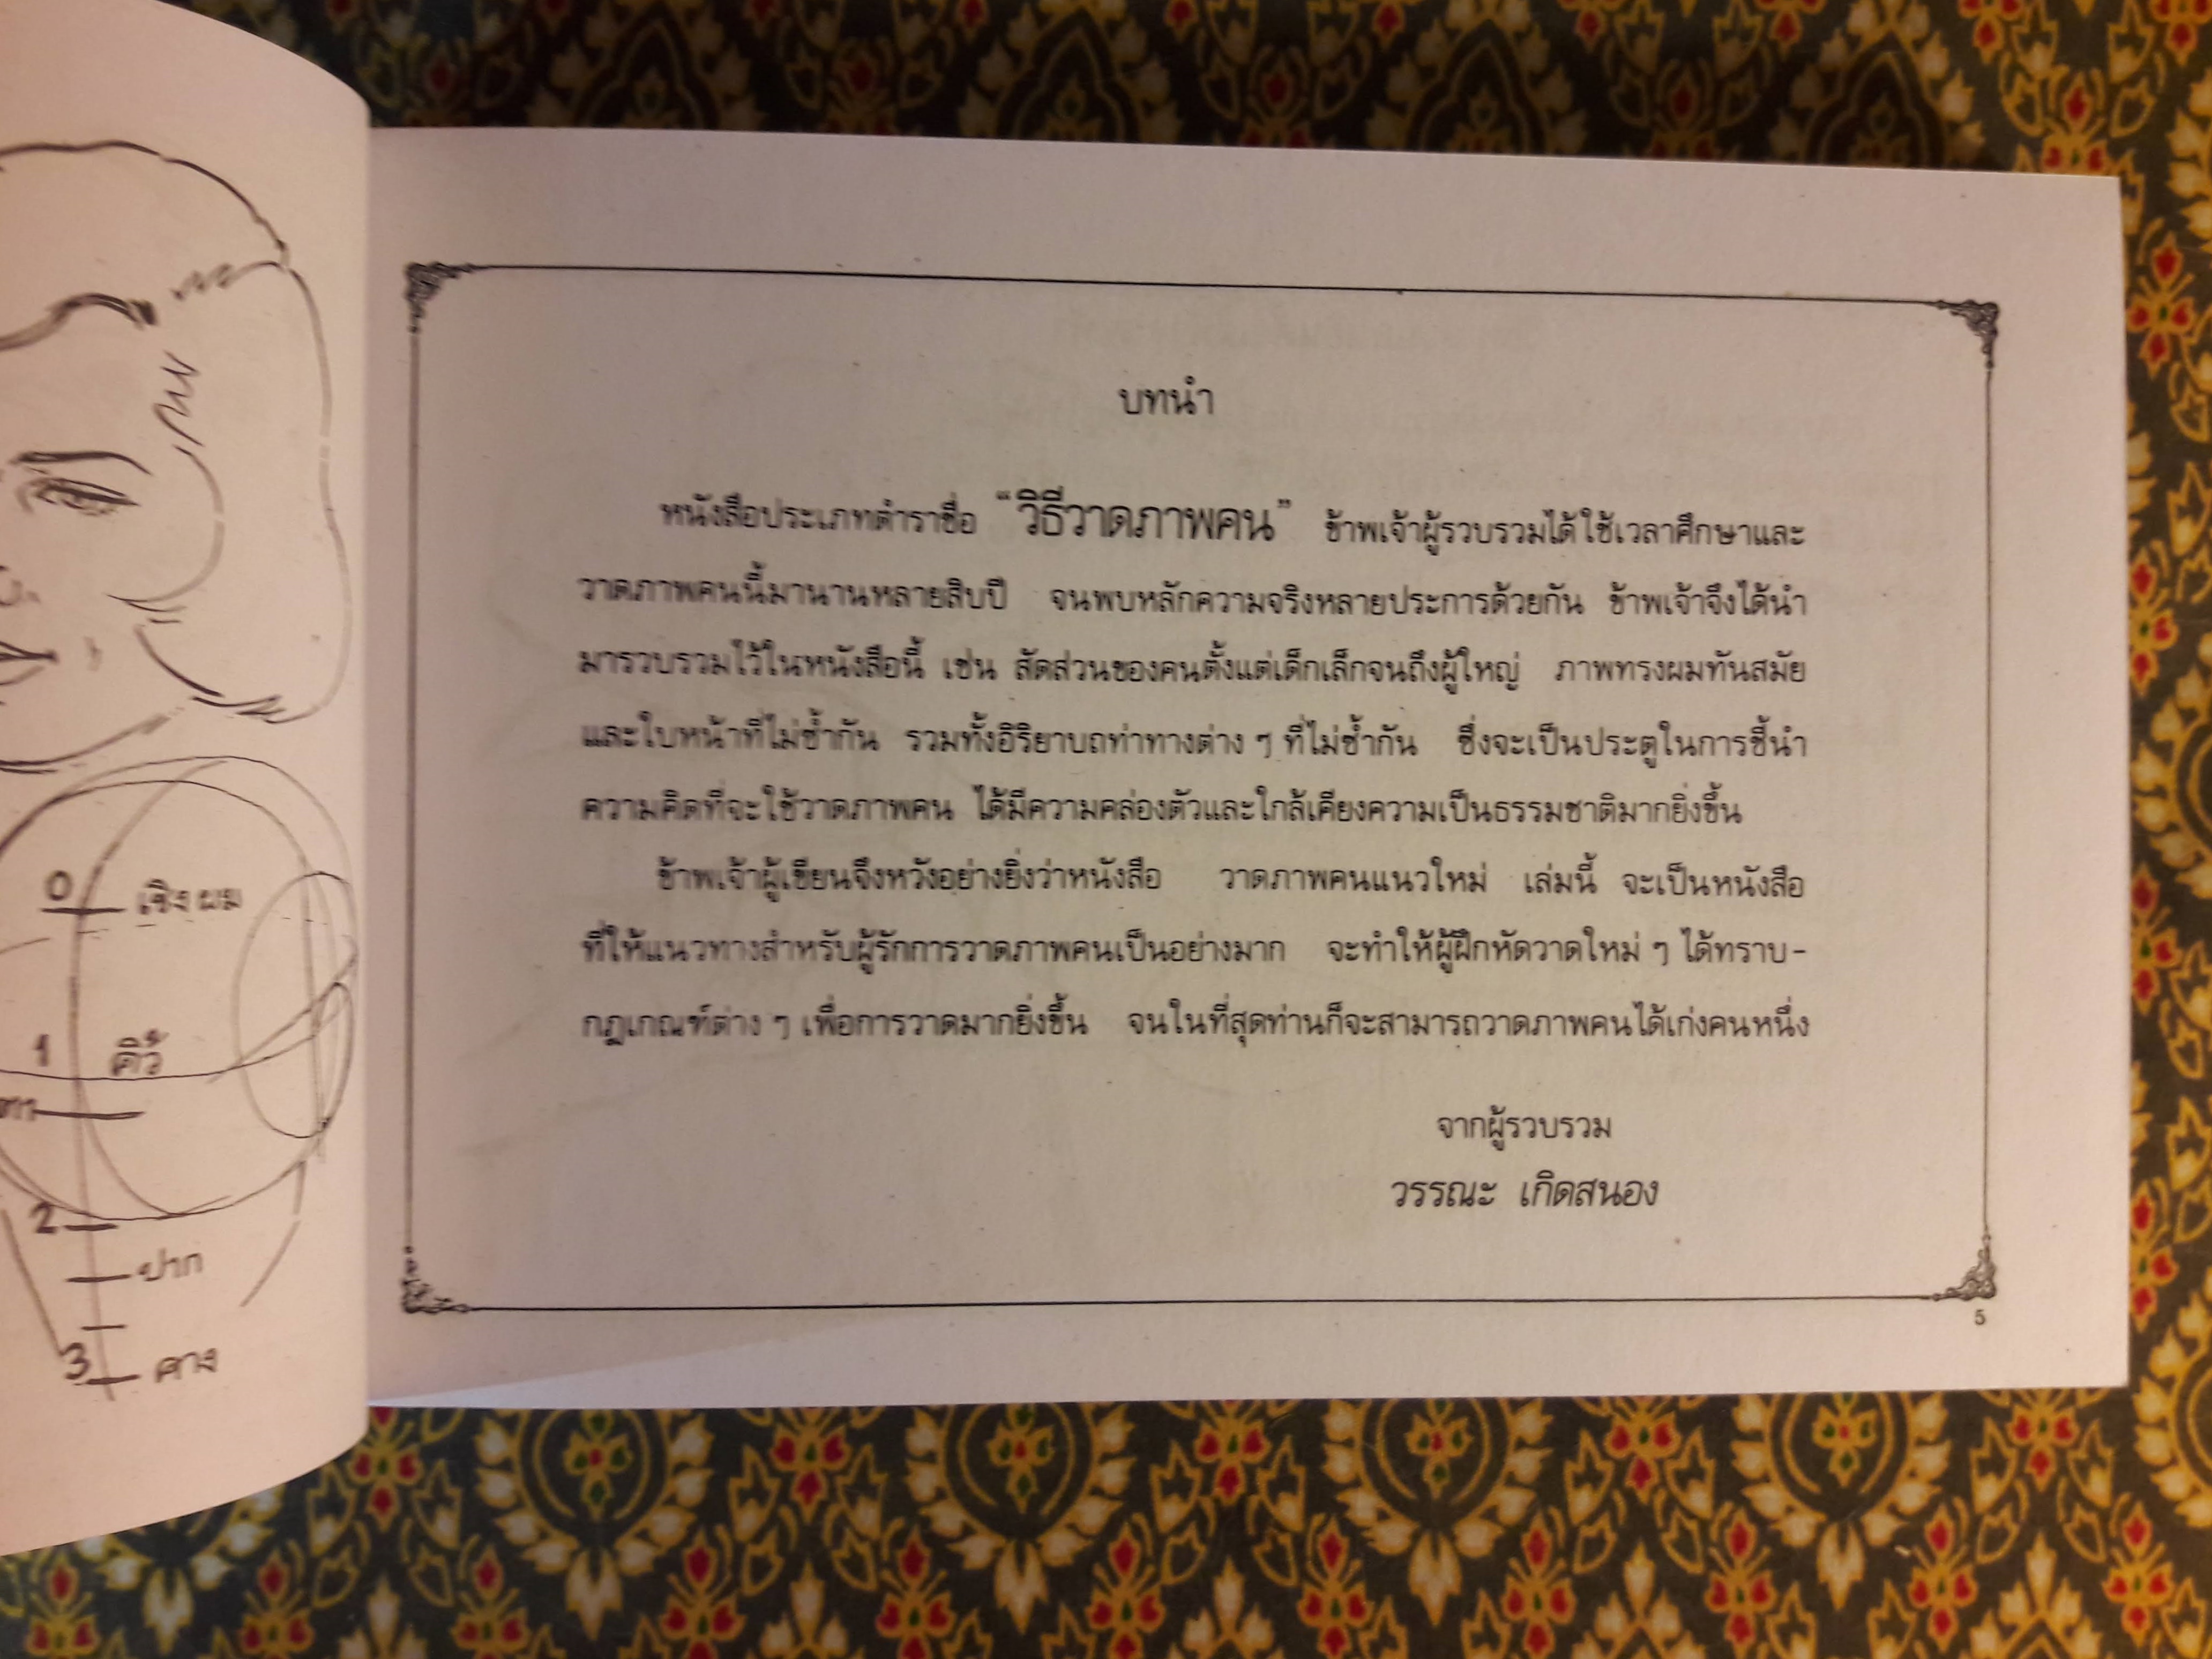 0 เชิงผม
1 คิ้ว
ตา
2
ปาก
3 คาง
บทนำ
หนังสือประเภทตำราชื่อ “วิธีวาดภาพคน” ข้าพเจ้าผู้รวบรวมได้ใช้เวลาศึกษาและ
วาดภาพคนนี้มานานหลายสิบปี จนพบหลักความจริงหลายประการด้วยกัน ข้าพเจ้าจึงได้นำ
มารวบรวมไว้ในหนังสือนี้ เช่น สัดส่วนของคนตั้งแต่เด็กเล็กจนถึงผู้ใหญ่ ภาพทรงผมทันสมัย
และใบหน้าที่ไม่ซ้ำกัน รวมทั้งอิริยาบถท่าทางต่าง ๆ ที่ไม่ซ้ำกัน ซึ่งจะเป็นประตูในการชี้นำ
ความคิดที่จะใช้วาดภาพคน ได้มีความคล่องตัวและใกล้เคียงความเป็นธรรมชาติมากยิ่งขึ้น
ข้าพเจ้าผู้เขียนจึงหวังอย่างยิ่งว่าหนังสือ วาดภาพคนแนวใหม่ เล่มนี้ จะเป็นหนังสือ
ที่ให้แนวทางสำหรับผู้รักการวาดภาพคนเป็นอย่างมาก จะทำให้ผู้ฝึกหัดวาดใหม่ ๆ ได้ทราบ-
กฎเกณฑ์ต่าง ๆ เพื่อการวาดมากยิ่งขึ้น จนในที่สุดท่านก็จะสามารถวาดภาพคนได้เก่งคนหนึ่ง
จากผู้รวบรวม
วรรณะ เกิดสนอง
5